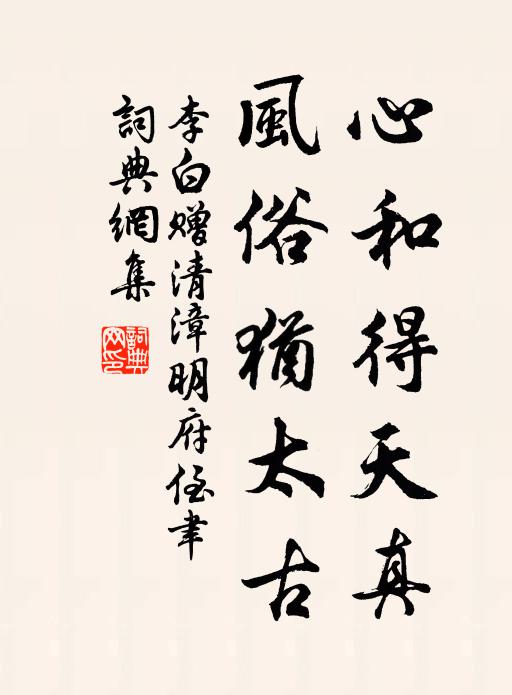 心和得天真
風俗猶太古
李白贈清漳明府侄聿
詞典網集
詞典
网印